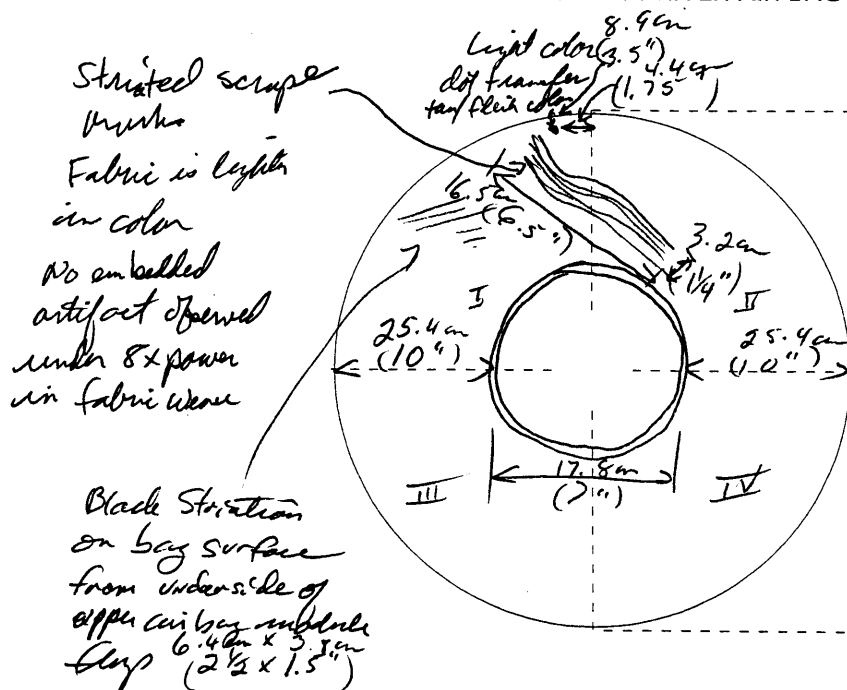 8.9cm
Light color (3.5")
dot transfer 4.4cm
tan/flesh color (1.75")
Striated scrape
marks
Fabric is lighter
in color
No embedded
artifact observed
under 8x power
in fabric weave
16.5cm
(6.5")
3.2cm
(1¼")
I
II
25.4cm
(10")
25.4cm
(10")
17.8cm
(7")
III
IV
Black Striation
on bag surface
from underside of
upper air bag module
flap 6.4cm x 3.8cm
(2½ x 1.5")